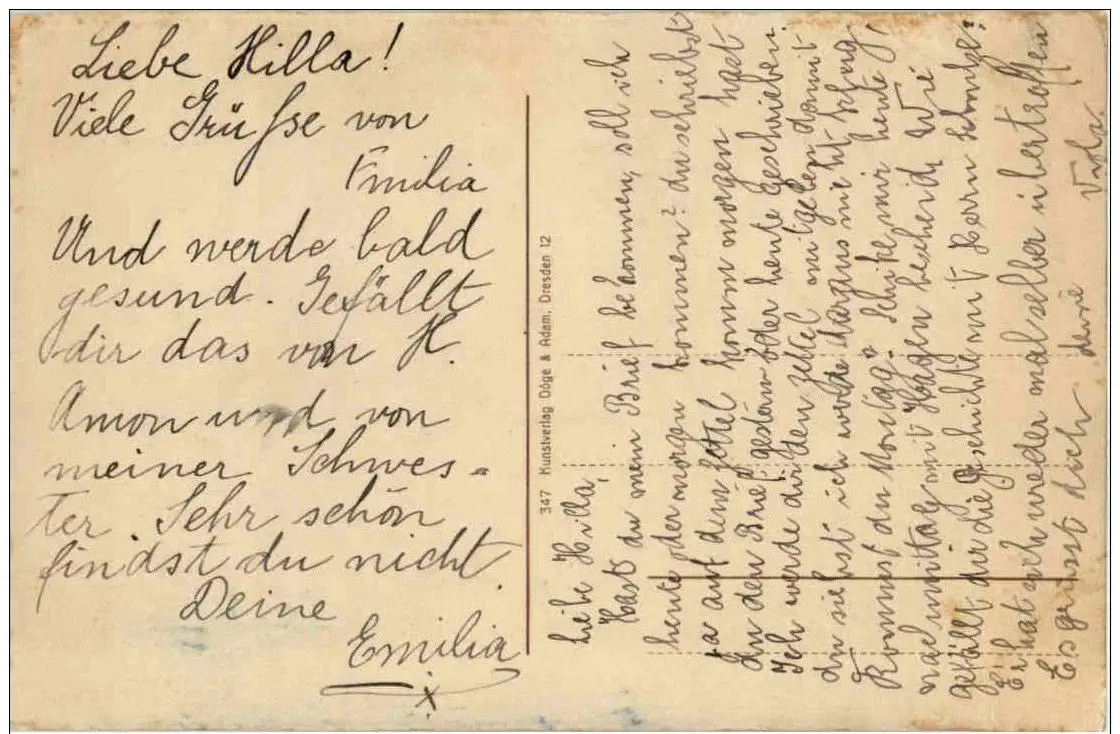 Liebe Hilla!
Viele Grüsse von
Emilia
Und werde bald
gesund. Gefällt
dir das von H.
Amon und von
meiner Schwes=
ter. Sehr schön
findst du nicht.
Deine
Emilia
x
347 Kunstverlag Döge & Adam, Dresden 12
Liebe Hilla,
Hast du mein Brief bekommen, soll ich
heute oder morgen kommen? du schriebst
ja auf dem Zettel komm morgen hast
du den Brief gestern oder heute geschrieben.
Ich werde dir den Zettel mitgeben damit
du siehst ich werde daraus nicht schlau,
Kommst du Montag? Schike mir heute
nachmittag mit Hagen bescheid. Wie
gefällt dir die Geschichte mit Herrn
Er hat sich wieder mal selber übertroffen
Es grüsst dich deine